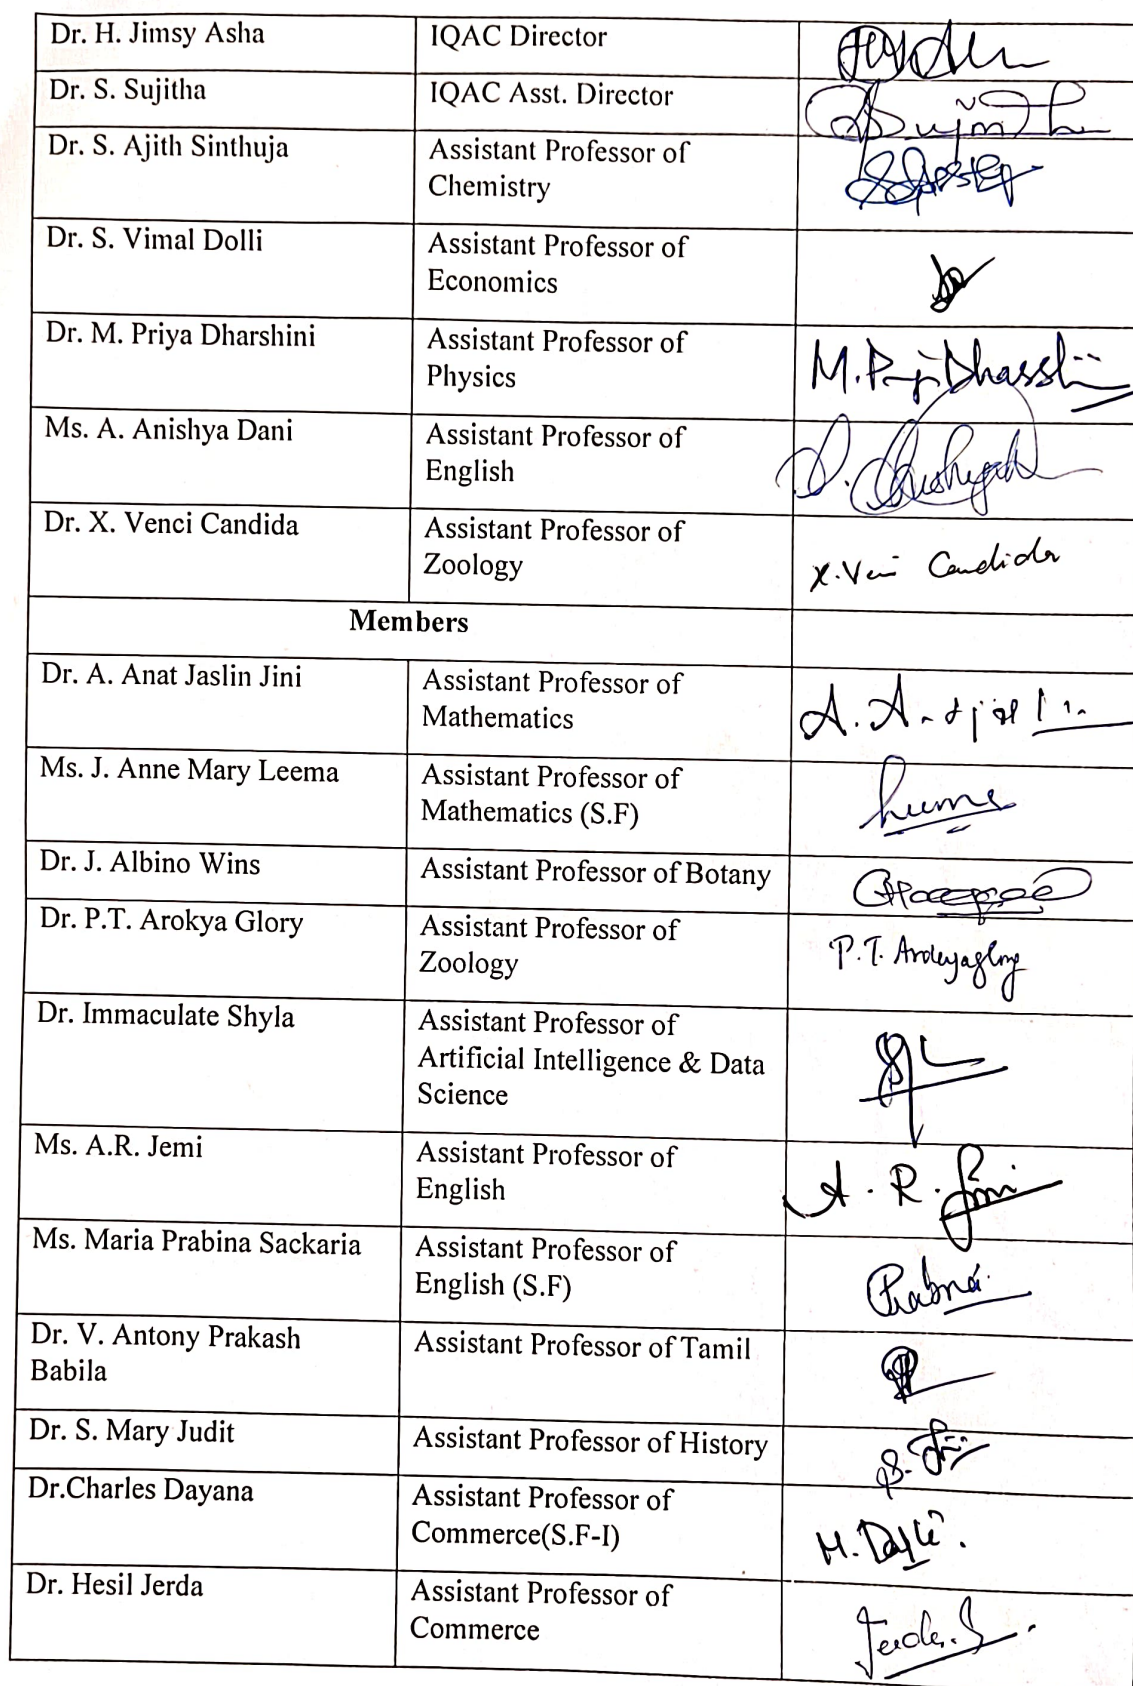 Dr. H. Jimsy Asha IQAC Director
Dr. S. Sujitha IQAC Asst. Director
Dr. S. Ajith Sinthuja Assistant Professor of
Chemistry
Dr. S. Vimal Dolli Assistant Professor of
Economics
Dr. M. Priya Dharshini Assistant Professor of
Physics
Ms. A. Anishya Dani Assistant Professor of
English
Dr. X. Venci Candida Assistant Professor of
Zoology X. Candida
Members
Dr. A. Anat Jaslin Jini Assistant Professor of
Mathematics
Ms. J. Anne Mary Leema Assistant Professor of
Mathematics (S.F)
Dr. J. Albino Wins Assistant Professor of Botany
Dr. P.T. Arokya Glory Assistant Professor of
Zoology P.T.
Dr. Immaculate Shyla Assistant Professor of
Artificial Intelligence & Data
Science
Ms. A.R. Jemi Assistant Professor of
English A. R.
Ms. Maria Prabina Sackaria Assistant Professor of
English (S.F)
Dr. V. Antony Prakash Assistant Professor of Tamil
Babila
Dr. S. Mary Judit Assistant Professor of History
Dr.Charles Dayana Assistant Professor of
Commerce(S.F-I)
Dr. Hesil Jerda Assistant Professor of
Commerce